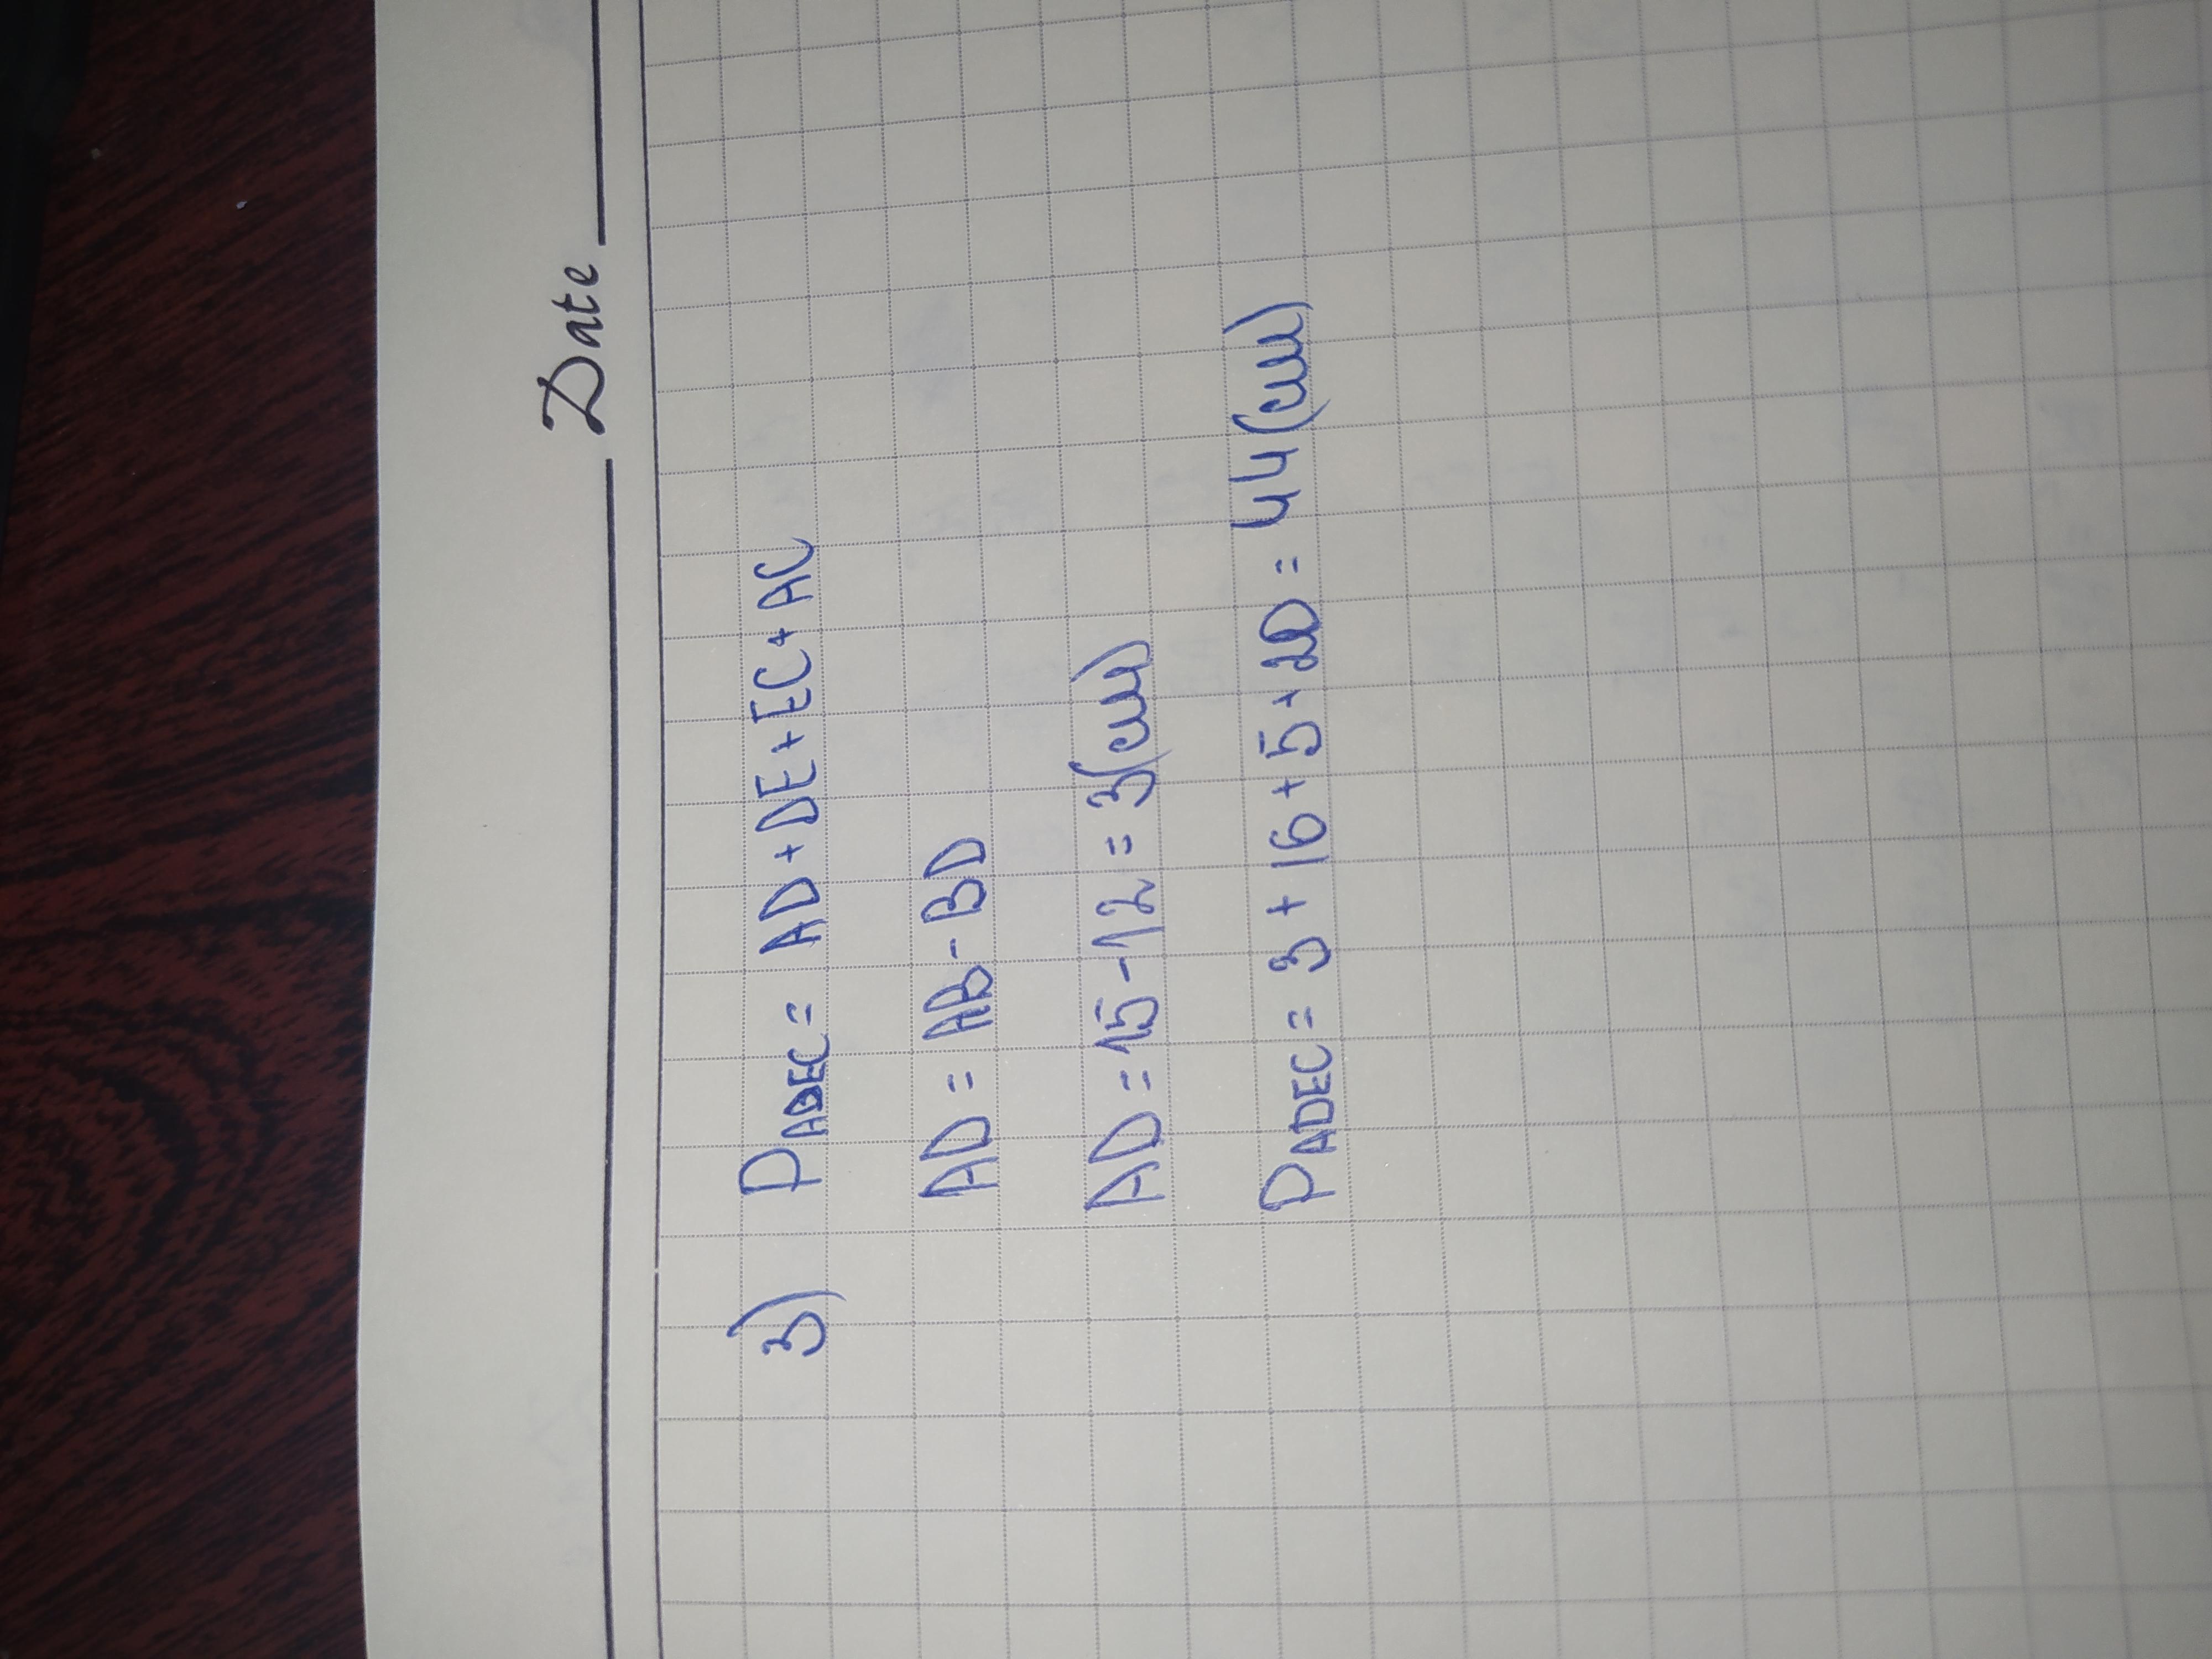 Date
3) PADEC = AD + DE + EC + AC
AD = AB - BD
AD = 15 - 12 = 3 (см)
PADEC = 3 + 16 + 5 + 20 = 44 (см)